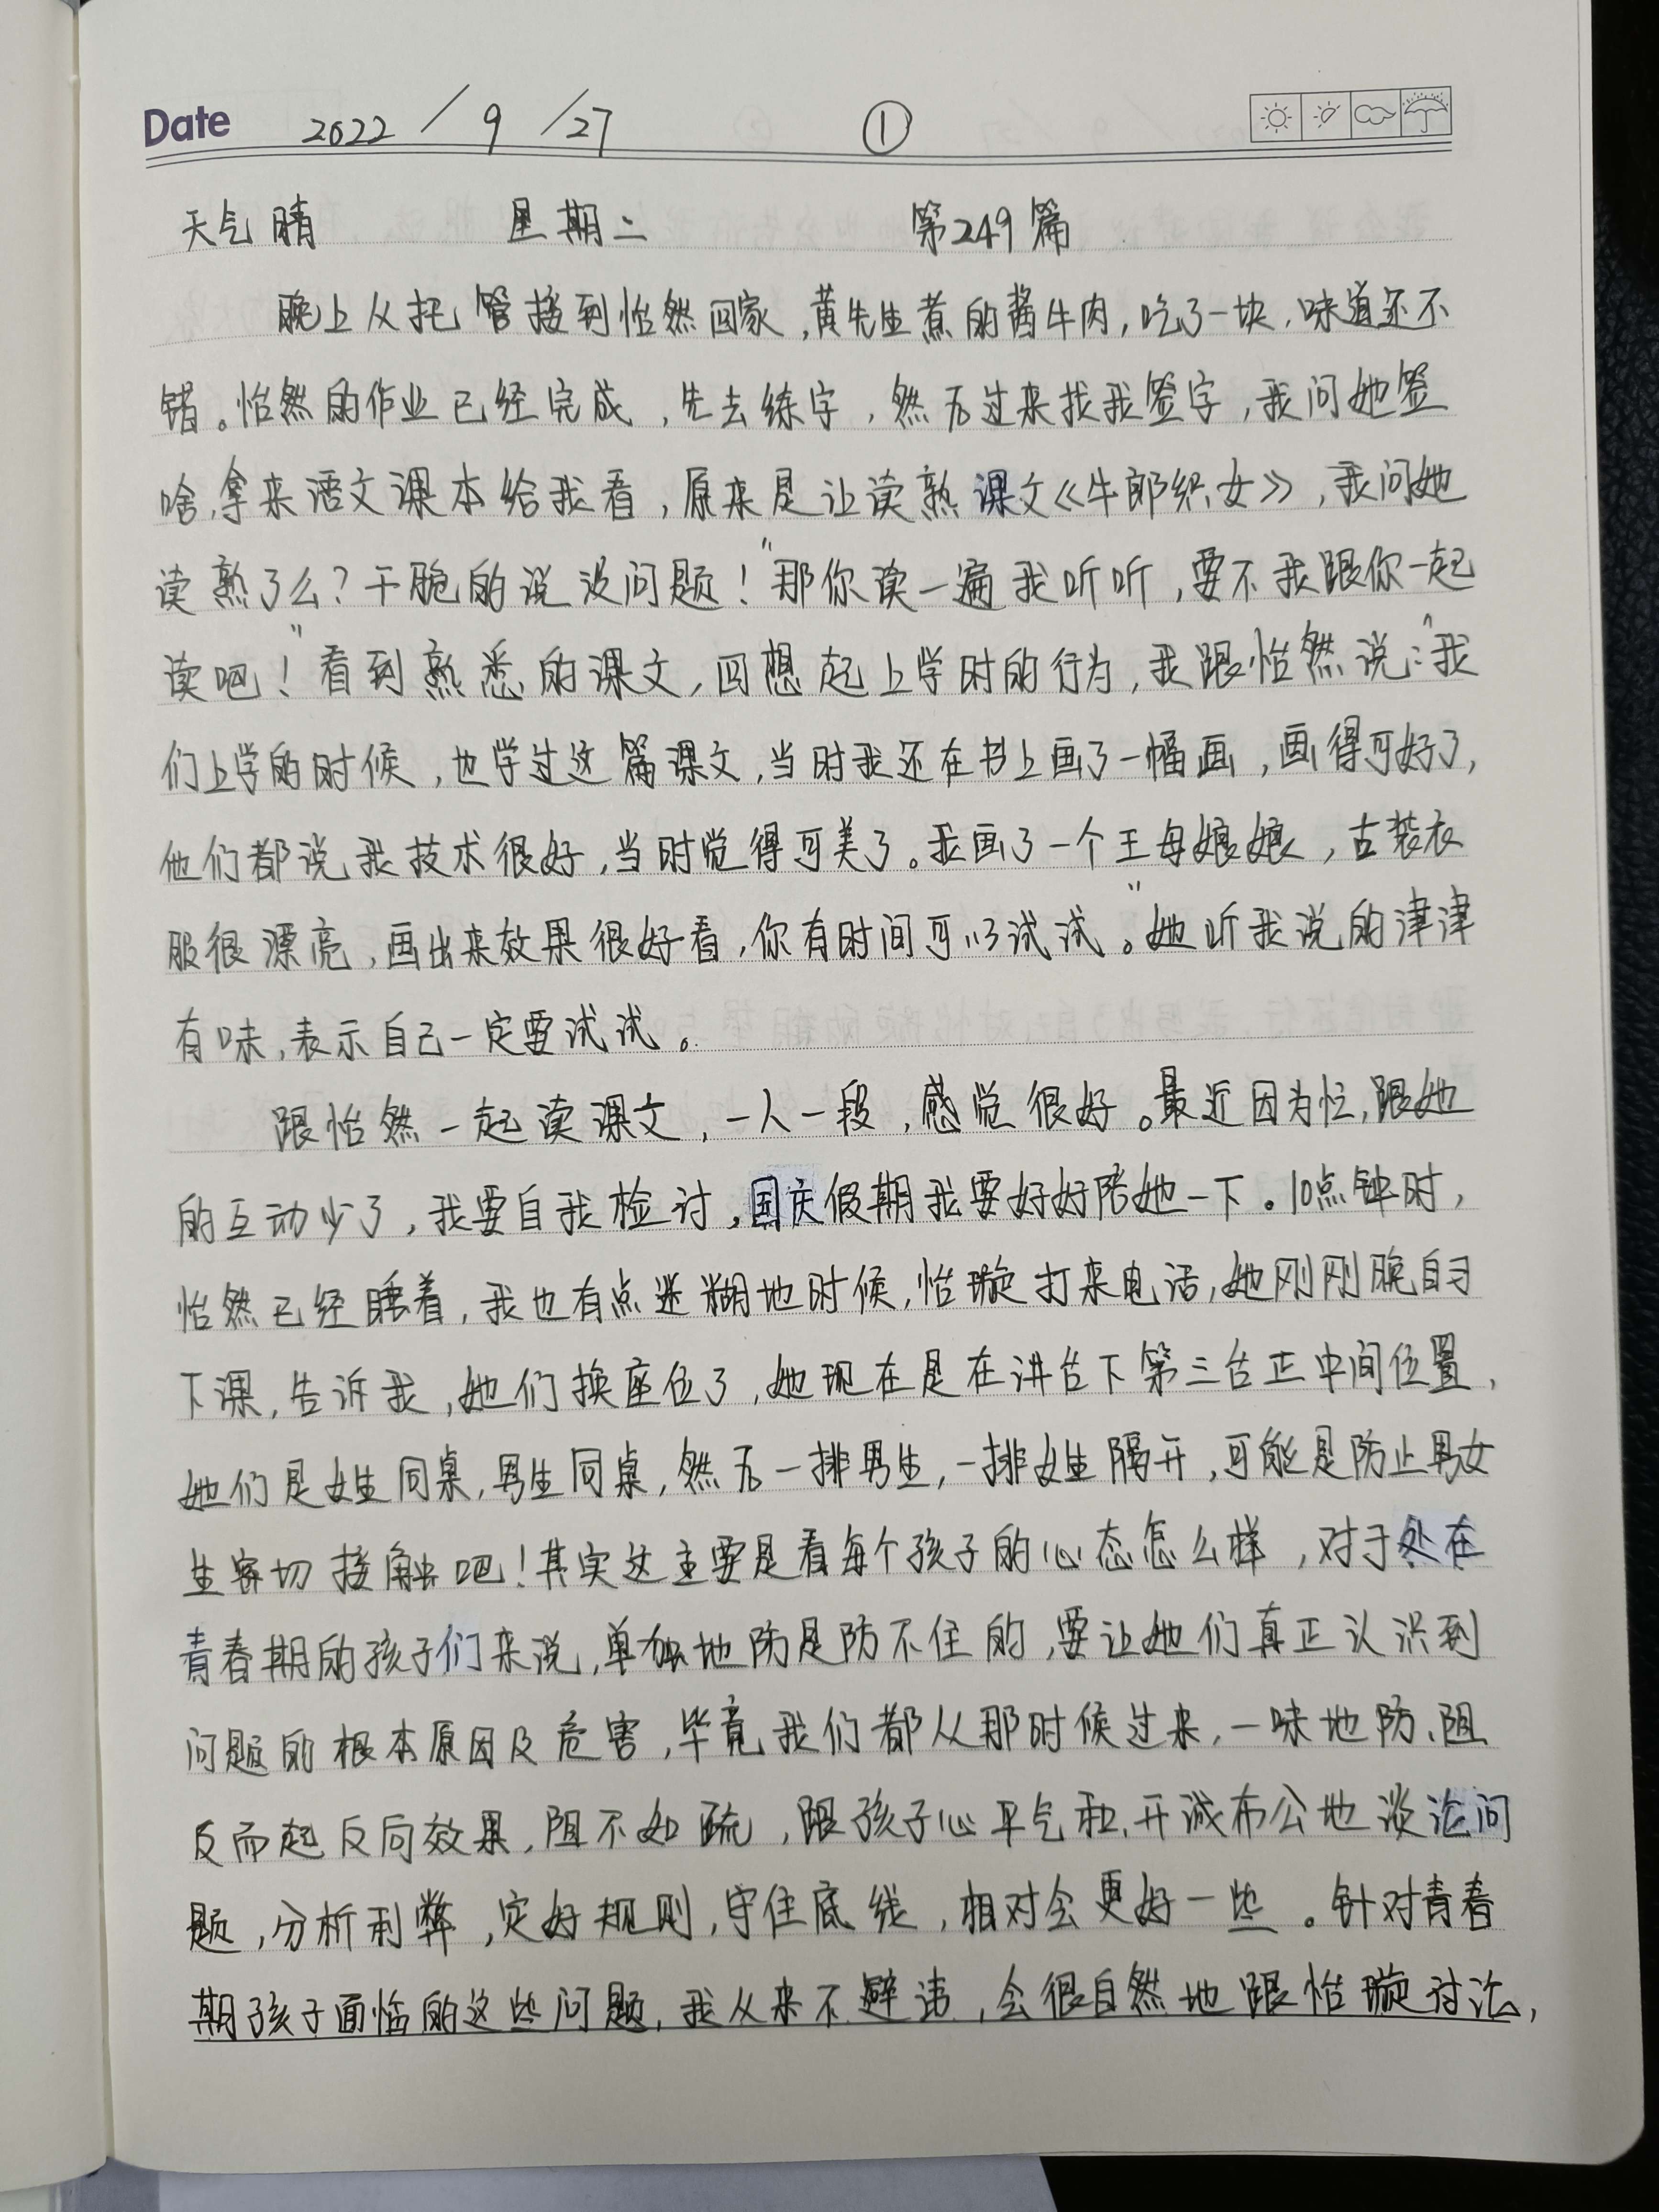 Date 2022 / 9 / 27 ①
天气晴 星期二 第249篇
晚上从托管接到怡然回家,黄先生煮的酱牛肉,吃了一块,味道还不
错。怡然的作业已经完成,先去练字,然后过来找我签字,我问她签
啥,拿来语文课本给我看,原来是让读熟课文《牛郎织女》,我问她
读熟了么?干脆的说没问题!"那你读一遍我听听,要不我跟你一起
读吧!"看到熟悉的课文,回想起上学时的行为,我跟怡然说:"我
们上学的时候,也学过这篇课文,当时我还在书上画了一幅画,画得可好了,
他们都说我技术很好,当时觉得可美了。我画了一个王母娘娘,古装衣
服很漂亮,画出来效果很好看,你有时间可以试试。"她听我说的津津
有味,表示自己一定要试试。
跟怡然一起读课文,一人一段,感觉很好。最近因为忙,跟她
的互动少了,我要自我检讨,国庆假期我要好好陪她一下。10点钟时,
怡然已经睡着,我也有点迷糊地时候,怡璇打来电话,她刚刚晚自习
下课,告诉我,她们换座位了,她现在是在讲台下第三台正中间位置,
她们是女生同桌,男生同桌,然后一排男生,一排女生隔开,可能是防止男女
生密切接触吧!其实这主要是看每个孩子的心态怎么样,对于处在
青春期的孩子们来说,单独地防是防不住的,要让她们真正认识到
问题的根本原因及危害,毕竟我们都从那时候过来,一味地防、阻
反而起反向效果,阻不如疏,跟孩子心平气和、开诚布公地谈论问
题,分析利弊,定好规则,守住底线,相对会更好一些。针对青春
期孩子面临的这些问题,我从来不避讳,会很自然地跟怡璇讨论,